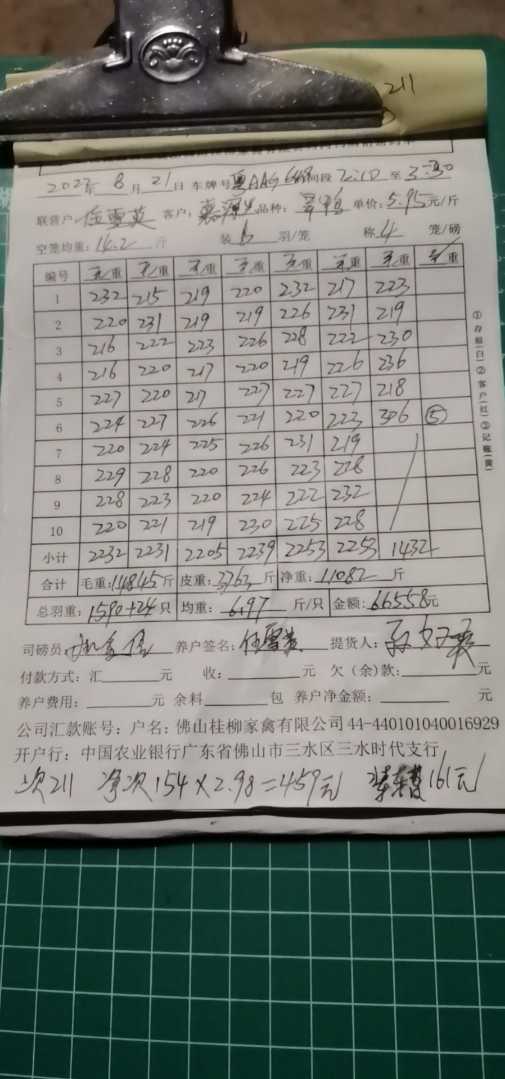 211
2023年 8 月 21 日 车牌号 粤AAG 时间段 2:10 至 3:30
联营户: 伍雪英 客户: 品种: 单价: 5.95 元/斤
空笼均重: 14.2 斤 装 6 羽/笼 称 4 笼/磅
编号 毛/重 毛/重 毛/重 毛/重 毛/重 毛/重 毛/重 毛/重
1 232 215 219 220 232 217 223
2 220 231 219 219 226 231 219
3 216 222 223 226 228 222 230
4 216 220 217 220 219 226 236
5 227 220 217 227 227 227 218
6 224 227 226 221 220 223 306 ⑤
7 220 224 225 226 231 219
8 229 228 220 226 223 228
9 228 223 220 224 222 232
10 220 221 219 230 225 228
小计 2232 2231 2205 2239 2253 2253 1432
合计 毛重: 14845 斤 皮重: 3763 斤 净重: 11082 斤
总羽重: 1590+24 只 均重: 6.97 斤/只 金额: 66558元
①存根(白)②客户(红)③记账(黄)
司磅员: 养户签名: 伍雪英 提货人:
付款方式: 汇 元 收: 元 欠(余)款: 元
养户费用: 元 余料 包 养户净金额: 元
公司汇款账号: 户名: 佛山桂柳家禽有限公司 44-440101040016929
开户行: 中国农业银行广东省佛山市三水区三水时代支行
次211 净次154×2.98=459元 161元